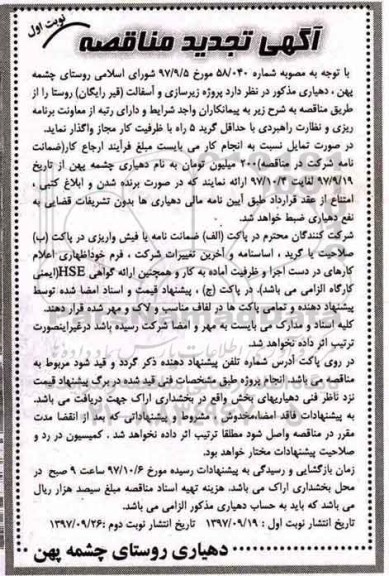 نوبت اول
آگهی تجدید مناقصه
با توجه به مصوبه شماره ۵۸/۰۴۰ مورخ ۹۷/۹/۵ شورای اسلامی روستای چشمه
پهن ، دهیاری مذکور در نظر دارد پروژه زیرسازی و آسفالت (قیر رایگان) روستا را از
طریق مناقصه به شرح زیر به پیمانکاران واجد شرایط و دارای رتبه از معاونت برنامه
ریزی و نظارت راهبردی با حداقل گرید ۵ راه با ظرفیت کار مجاز واگذار نماید.
در صورت تمایل نسبت به انجام کار می بایست مبلغ فرآیند ارجاع کار(ضمانت
نامه شرکت در مناقصه)۲۰۰ میلیون تومان به نام دهیاری چشمه پهن از تاریخ
۹۷/۹/۱۹ لغایت ۹۷/۱۰/۳ ارائه نمایند که در صورت برنده شدن و ابلاغ کتبی ،
امتناع از عقد قرارداد طبق آیین نامه مالی دهیاری ها بدون تشریفات قضایی به
نفع دهیاری ضبط خواهد شد.
شرکت کنندگان محترم در پاکت (الف) ضمانت نامه یا فیش واریزی در پاکت (ب)
صلاحیت یا گرید ، اساسنامه و آخرین تغییرات شرکت ، فرم خوداظهاری اعلام
کارهای در دست اجرا و ظرفیت آماده به کار و همچنین ارائه گواهی HSE(ایمنی
کارگاه الزامی می باشد). در پاکت (ج) ، پیشنهاد قیمت و اسناد امضا شده توسط
پیشنهاد دهنده و تمامی پاکت ها در لفاف مناسب و لاک و مهر شده قرار دهند.
کلیه اسناد و مدارک می بایست به مهر و امضا شرکت رسیده باشد درغیراینصورت
ترتیب اثر داده نخواهد شد.
در روی پاکت آدرس شماره تلفن پیشنهاد دهنده ذکر گردد و قید شود مربوط به
مناقصه می باشد. انجام پروژه طبق مشخصات فنی قید شده در برگ پیشنهاد قیمت
نزد ناظر فنی دهیاریهای بخش واقع در بخشداری اراک جهت دریافت می باشد.
به پیشنهادات فاقد امضا،مخدوش ، مشروط و پیشنهاداتی که بعد از انقضا مدت
مقرر در مناقصه واصل شود مطلقا ترتیب اثر داده نخواهد شد . کمیسیون در رد و
صلاحیت پیشنهادات مختار خواهد بود.
زمان بازگشایی و رسیدگی به پیشنهادات رسیده مورخ ۹۷/۱۰/۶ ساعت ۹ صبح در
محل بخشداری اراک می باشد. هزینه تهیه اسناد مناقصه مبلغ سیصد هزار ریال
می باشد که باید به حساب دهیاری مذکور الزامی می باشد.
تاریخ انتشار نوبت اول : ۱۳۹۷/۰۹/۱۹ تاریخ انتشار نوبت دوم :۱۳۹۷/۰۹/۲۶
دهیاری روستای چشمه پهن